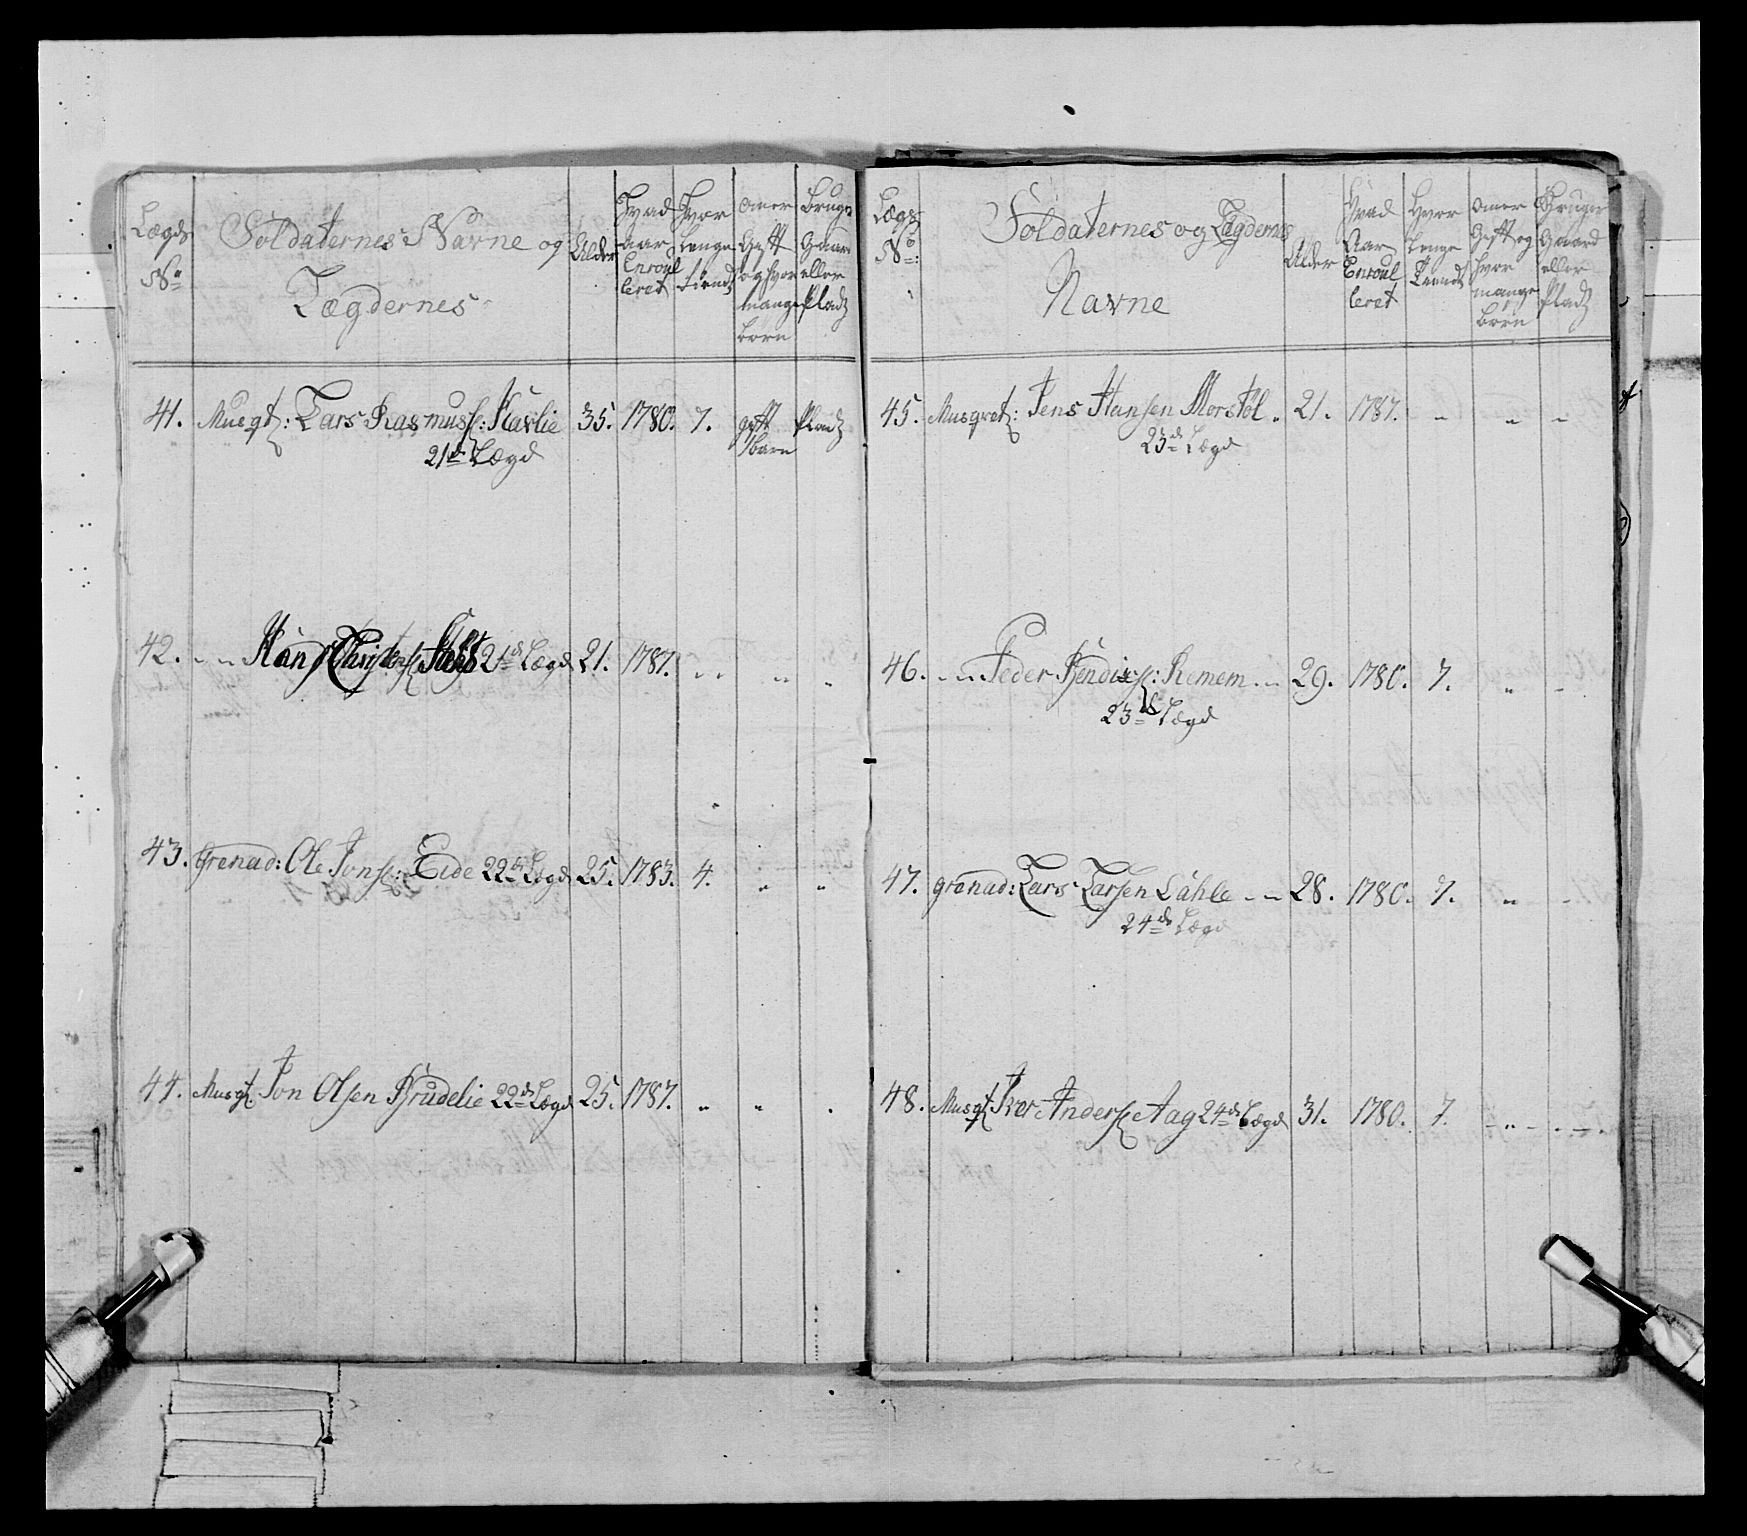 Lægds No Soldaternes Navne og Lægdernes Alder Hvad aar Enroulleret Hvor lenge tient om er Gift og hvor mange børn Bruger Gaard eller Pladz
41. Musqt: Lars Rasmuss: 35. 1780. 7. gift 1 barn Pladz
21de Lægd
42. " " Hans 21de Lægd 21. 1787. " " "
43. Grenad: Ole Jons: Eide 22de Lægd 25. 1783. 4. " "
44. Musqt Jon Olsen Brudelie 22de Lægd 25. 1787. " " "
Lægds No: Soldaternes og Lægdernes Navne Alder Hvad Aar Enroulleret Hvor Lenge Tiendt om er Gift og hvor mange børn Bruger Gaard eller Pladz
45. Musqret: Jens Hansen Morstøl " 21. 1787. " " "
23de Lægd
46. " " Peder Bendixs: Remem " " 29. 1780. 7. " "
23de Lægd
47. grenad: Lars Larsen Dahle " " 28. 1780. 7. " "
24de Lægd
48. Musqt Iver Anders Aag 24de Lægd 31. 1780. 7. " "